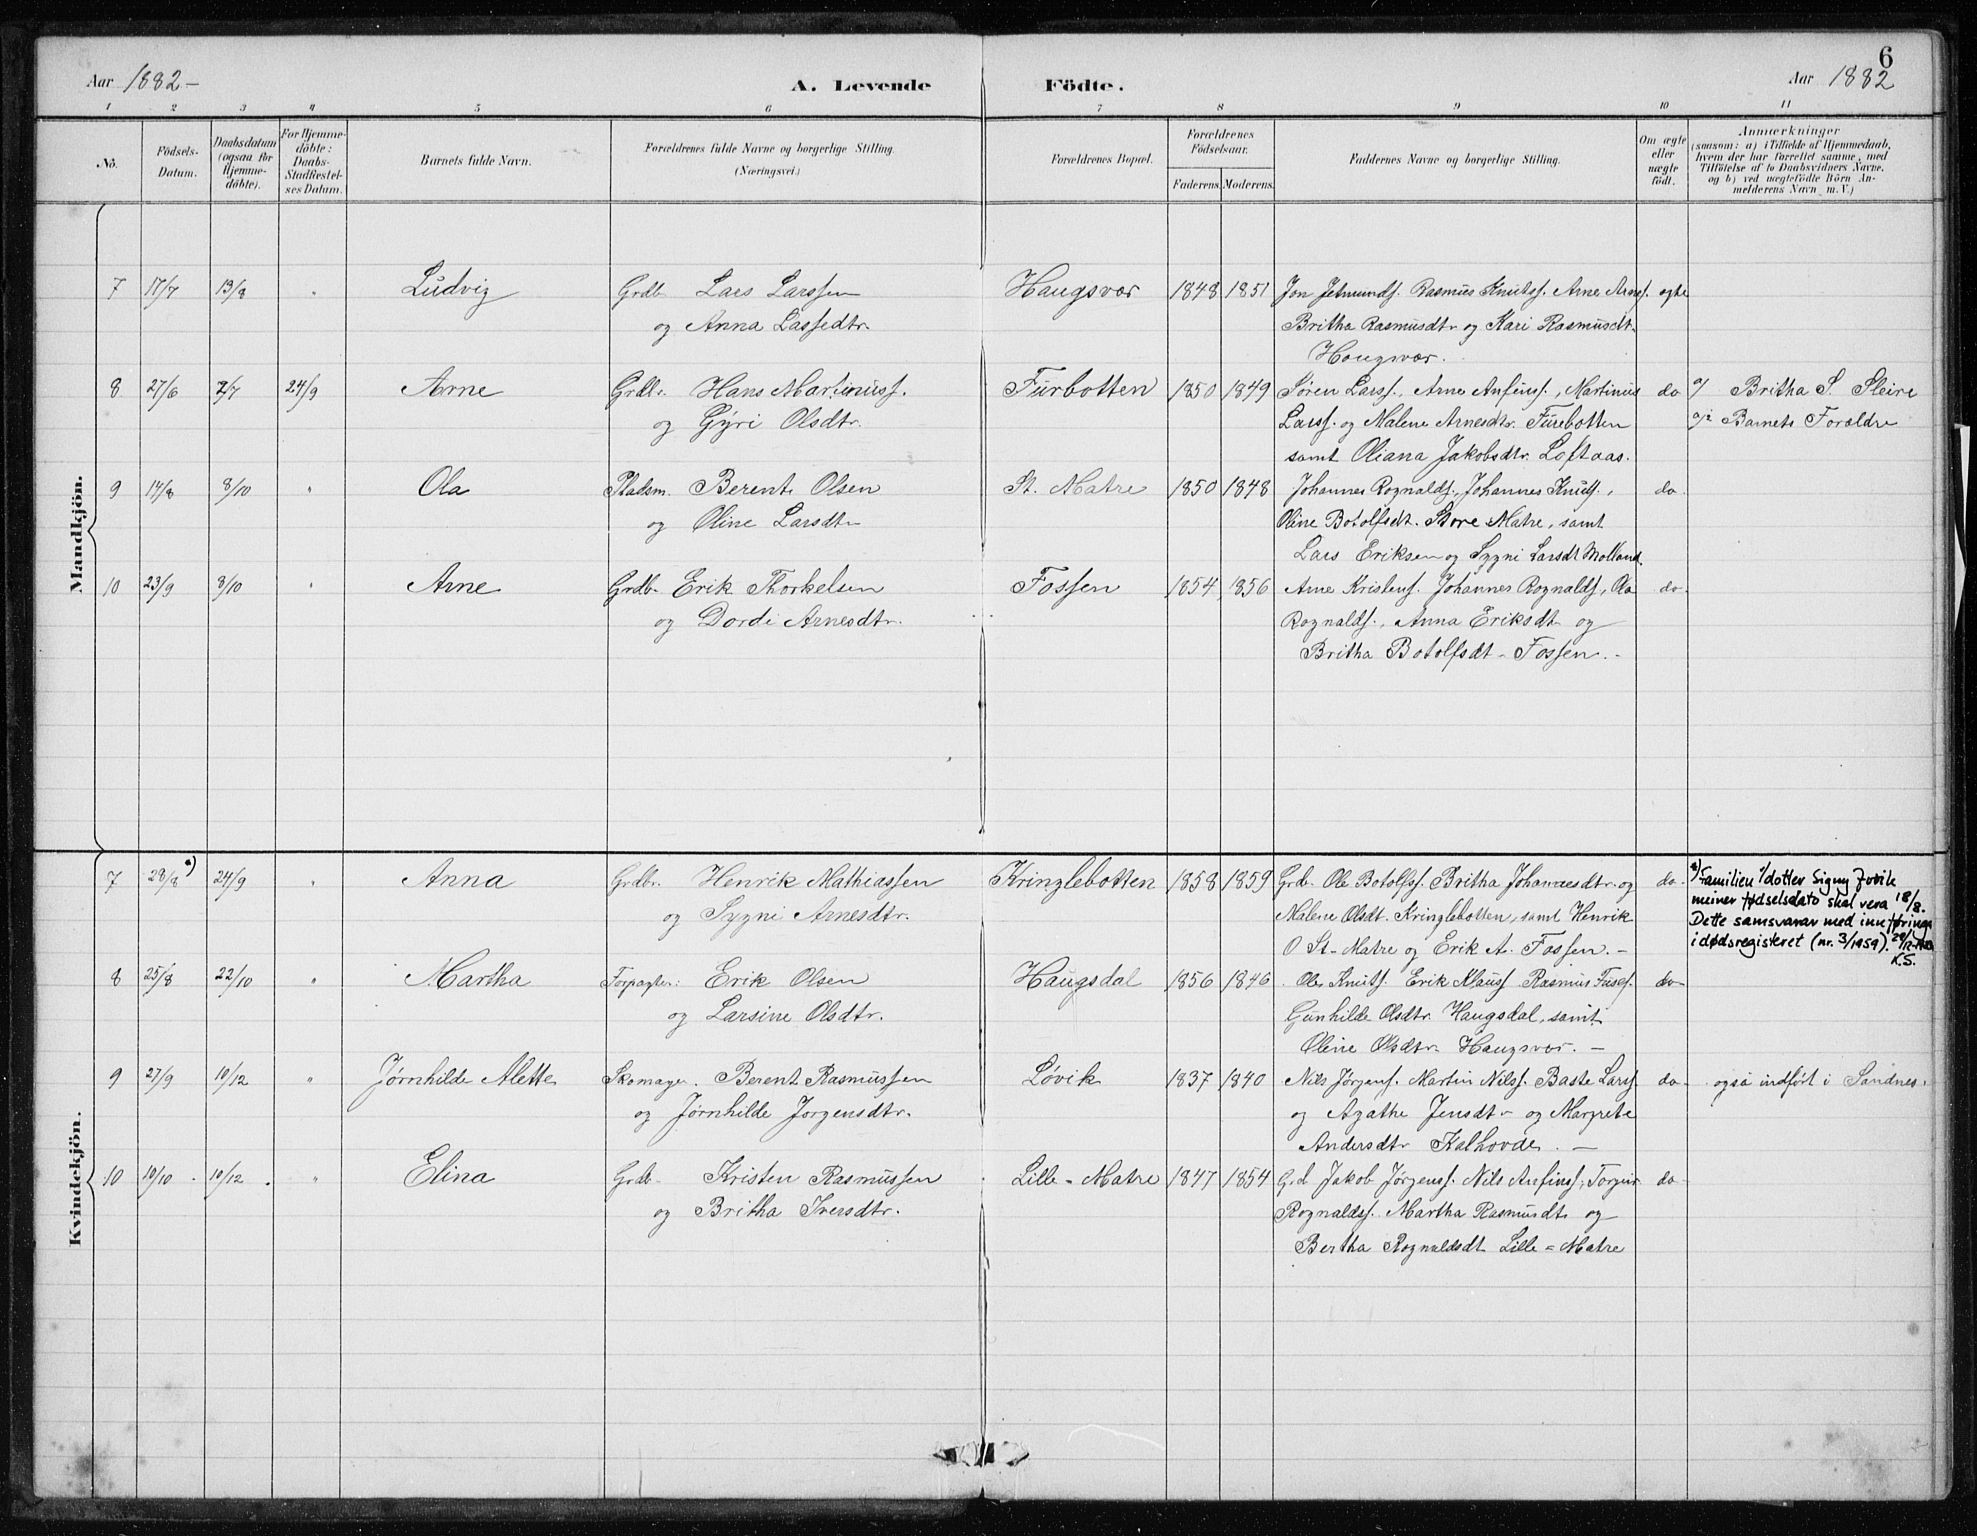 6
Aar 1882 – A. Levende Födte. Aar 1882
1 2 3 4 5 6 7 8 9 10 11
No. Födsels-Datum. Daabsdatum (ogsaa for Hjemme-döbte). For Hjemme-döbte: Daabs-Stadfæstel-ses Datum. Barnets fulde Navn. Forældrenes fulde Navne og borgerlige Stilling. (Næringsvei.) Forældrenes Bopæl. Forældrenes Födselsaar. Faderens. Moderens. Faddernes Navne og borgerlige Stilling. Om ægte eller uægte födt. Anmærkninger (saasom: a) i Tilfælde af Hjemmedaab, hvem der har forrettet samme, med Tilföielse af to Daabsvidners Navne, og b) ved uægtefödte Börn An-melderens Navn m. V.)
Mandkjön.
7 17/7 13/8 " Ludvig Grdb. Lars Larssen Haugsvær 1848 1851 Jon Jetmunds. Rasmus Knutss. Arne Arness. egte
og Anna Lassedtr. Britha Rasmusdtr og Kari Rasmusdt.
Haugsvær.
8 27/6 2/7 24/9 Arne Grdb. Hans Martinuss. Furbotten 1850 1849 Søren Larss., Arne Anfinss., Martinus do a/ Britha S. Sleire
og Gyri Olsdtr. Larss. og Malene Arnesdtr. Furebotten Barnets Forældre
samt Oliana Jakobsdtr. Loftaas.
9 14/8 8/10 " Ola Pladsm. Berent Olsen St. Matre 1850 1848 Johannes Rognalds., Johannes Knuts., do.
og Oline Larsdtr Oline Botolfsdt. Store Matre, samt
Lars Eriksen og Sygni Larsdt Molland.
10 23/9 8/10 " Arne Grdb. Erik Thorkelsen Fossen 1854 1856 Arne Kristens. Johannes Rognalds, Ola do.
og Dordi Arnesdtr. Rognalds., Anna Eriksdt og
Britha Botolfsdt – Fossen. –
Kvindekjön.
7 28/8 *) 24/9 " Anna Grdbr. Henrik Mathiassen Kringlebotten 1858 1859 Grdb. Ole Botolfss. Britha Johannesdtr. og do. *) Familien v/dotter Signy
og Sygni Arnesdtr. Malene Olsdt. Kringlebotten, samt Henrik meiner fødselsdato skal vera 18/8.
O St. Matre og Erik A. Fossen. – Dette samsvarar med innføringa
i dødsregisteret (nr. 3/1959). K.S.
8 25/8 22/10 " Martha Forpagter: Erik Olsen Haugsdal 1856 1846 Ole Knuts. Erik Klauss Rasmus do
og Larsine Olsdtr. Gunhilde Olsdtr. Haugsdal, samt
Oline Olsdtr. Haugsvær. –
9 27/9 10/12 " Jørnhilde Alette Skomager. Berent Rasmussen Løvik 1837 1840 Nils Jørgens. Martin Nilss. Baste Larss do – også indført i Sandnes.
og Jørnhilde Jorgensdtr. og Agathe Jensdtr og Margrete
Andersdtr Kalhovde. –
10 10/10 10/12 " Elina Grdb. Kristen Rasmussen Lille-Matre 1847 1854 Grd Jakob Jørgenss. Nils Anfinss, Torgeir do –
og Britha Iversdtr. Rognaldss. Martha Rasmusdtr og
Bertha Rognaldsdt Lille-Matre